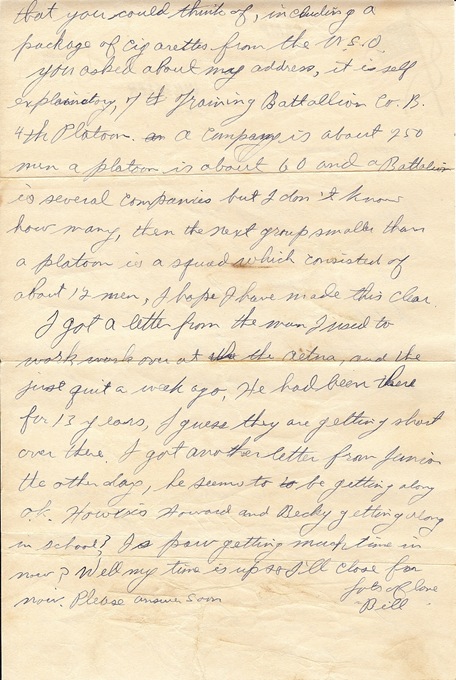 that you could think of, including a
package of cigarettes from the U.S.O.
you asked about my address, it is self
explainatory, 7th Training Battallion Co. B.
4th Platoon. a company is about 250
men a platoon is about 60 and a Battalion
is several companies but I don't know
how many, then the next group smaller than
a platoon is a squad which consisted of
about 12 men, I hope I have made this clear.
I got a letter from the man I used to
work work over at the aetna, and he
just quit a week ago, He had been there
for 13 years, I guess they are getting short
over there. I got another letter from Junior
the other day, he seems to be getting along
o.k. How Howard and Becky getting along
in school? Is paw getting much time in
now? Well my time is up so I'll close for
now. Please answer soon
Lots of love
"Bill"